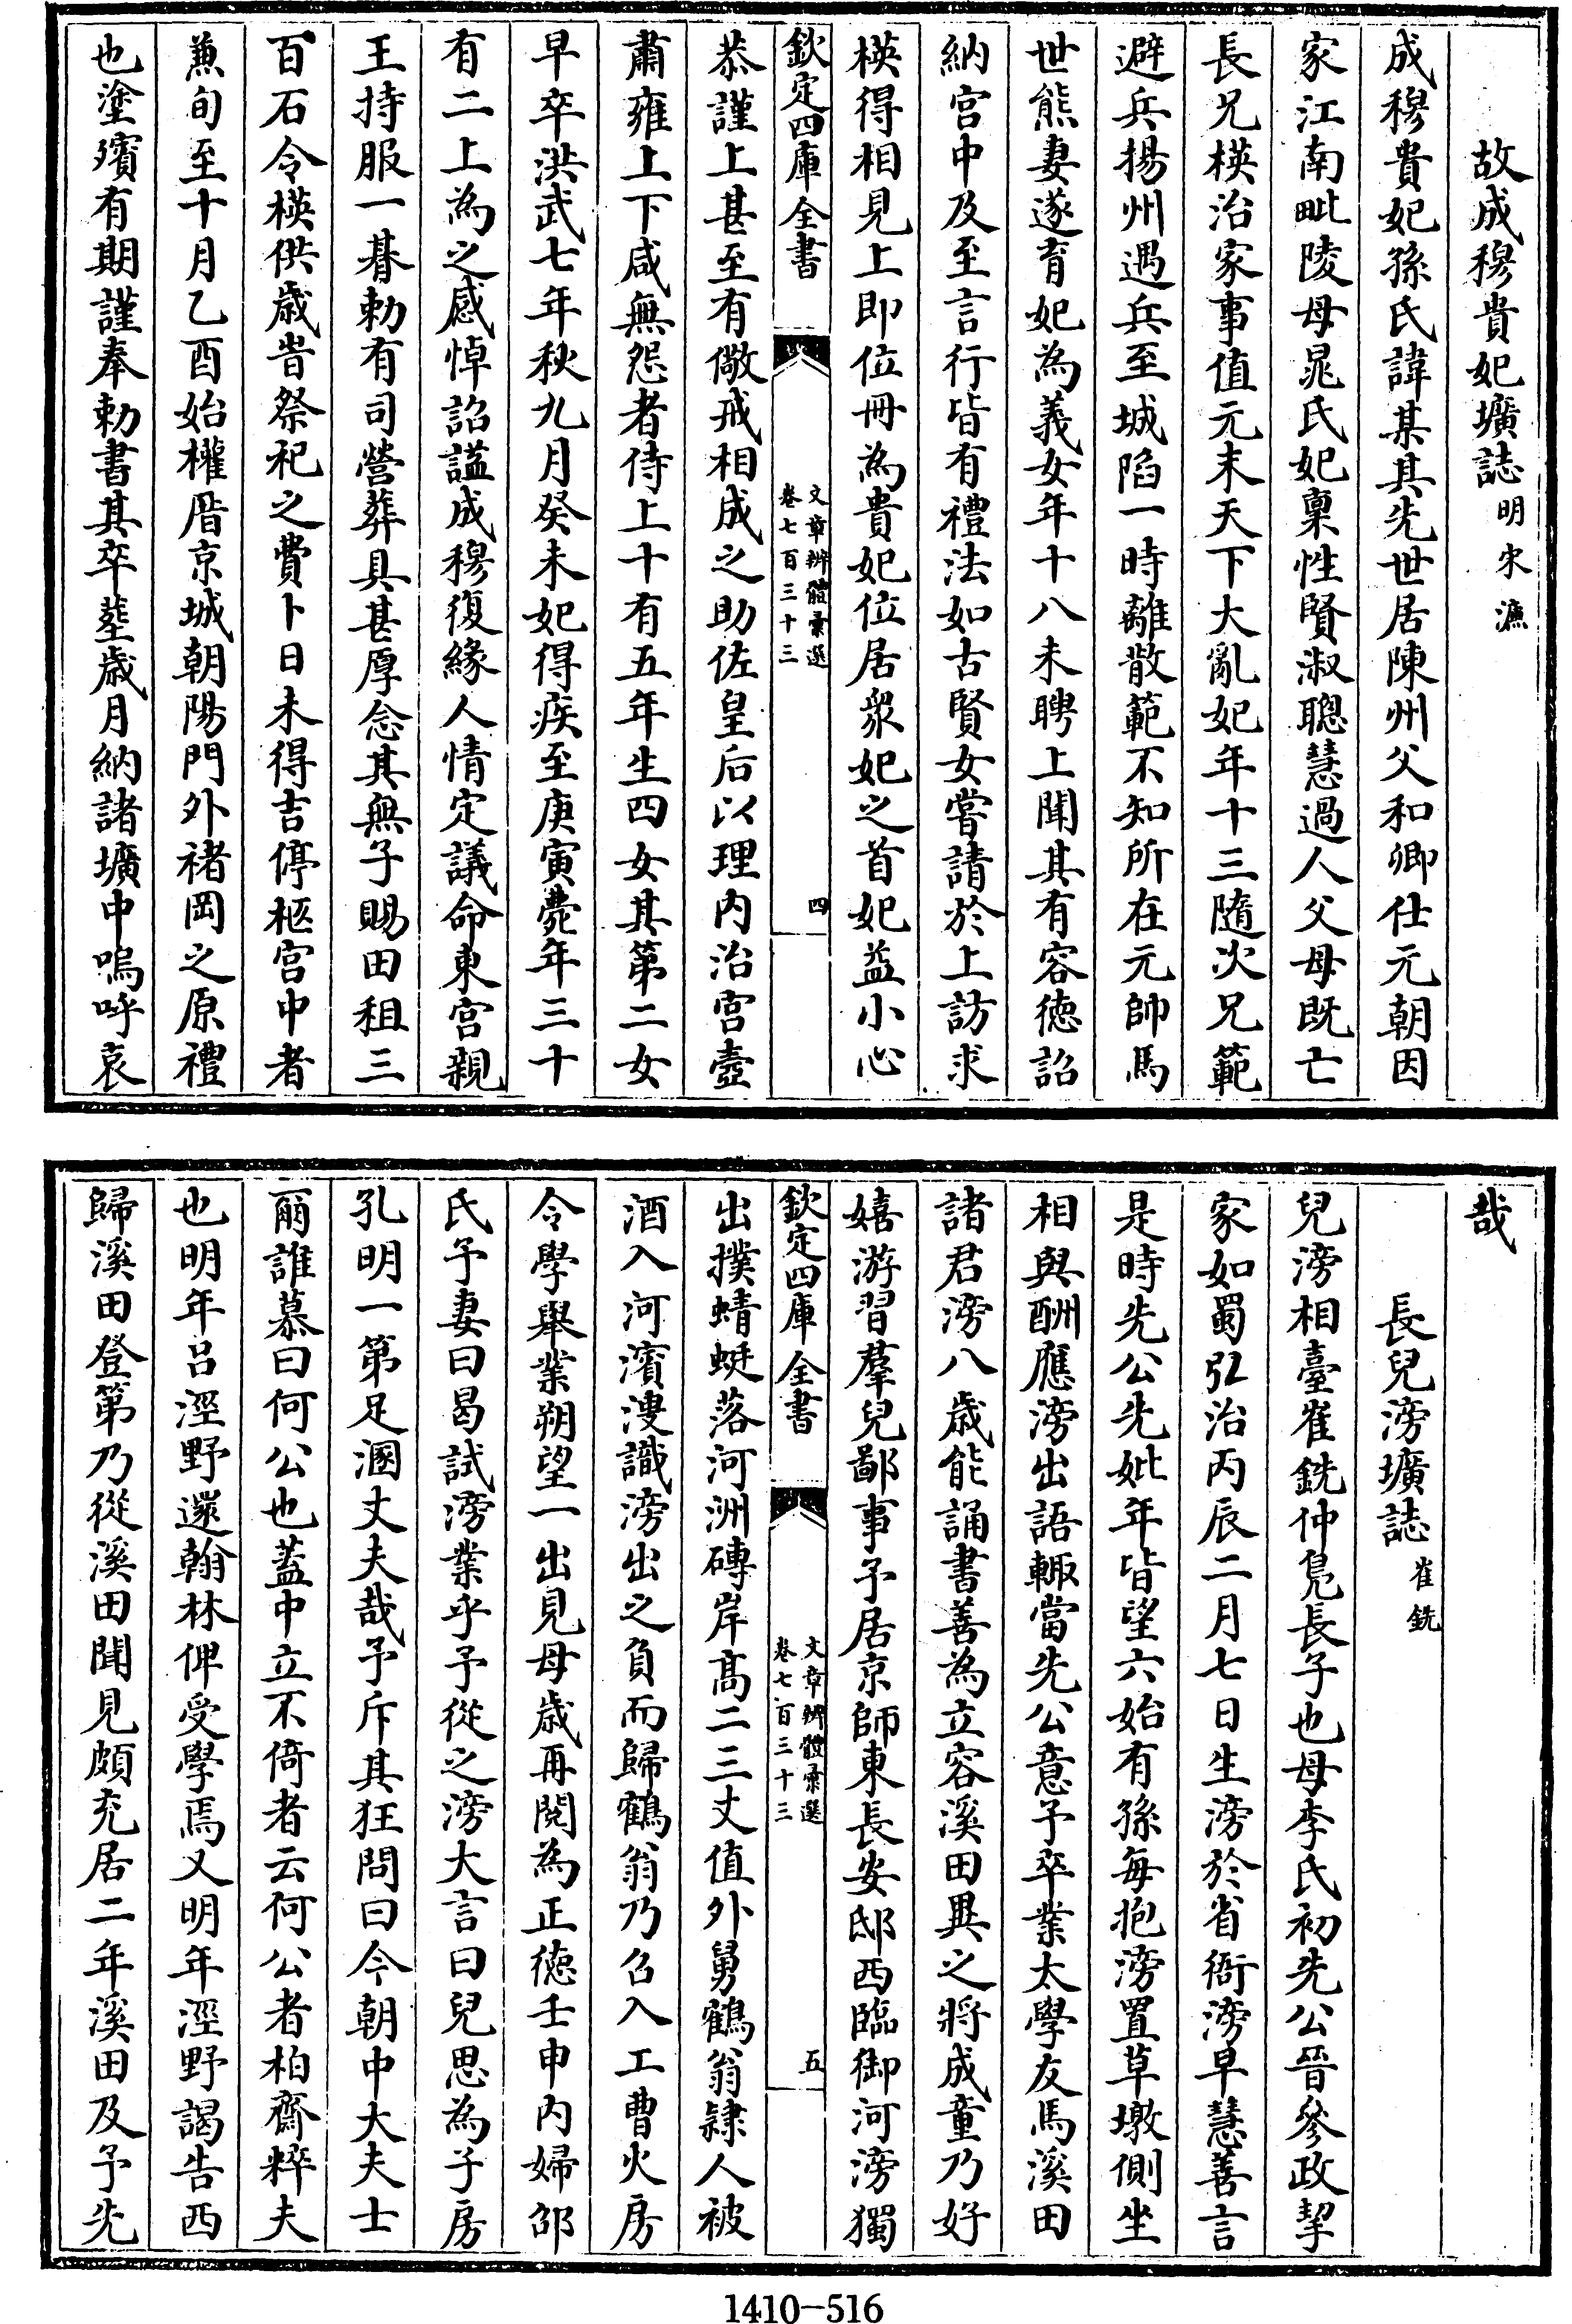 故成穆貴妃壙誌明宋濂
成穆貴妃孫氏諱某其先世居陳州父和卿仕元朝因
家江南毗陵母晁氏妃禀性賢淑聰慧過人父母既亡
長兄楧治家事值元末天下大亂妃年十三隨次兄範
避兵揚州遇兵至城陷一時離散範不知所在元帥馬
世熊妻遂育妃為義女年十八未聘上聞其有容德詔
納宫中及至言行皆有禮法如古賢女嘗請於上訪求
楧得相見上即位冊為貴妃位居衆妃之首妃益小心
欽定四庫全書
文章辨體彙選
卷七百三十三
四
恭謹上甚至有儆戒相成之助佐皇后以理内治宫壼
肅雍上下咸無怨者侍上十有五年生四女其第二女
早卒洪武七年秋九月癸未妃得疾至庚寅薨年三十
有二上為之感悼詔諡成穆復緣人情定議命東宫親
王持服一朞勅有司營葬具甚厚念其無子賜田租三
百石令楧供歲時祭祀之費卜日未得吉停柩宫中者
兼旬至十月乙酉始權厝京城朝陽門外褚岡之原禮
也塗殯有期謹奉勅書其卒塟歲月納諸壙中嗚呼哀
哉
長兒滂壙誌崔銑
兒滂相臺崔銑仲鳬長子也母李氏初先公晉參政挈
家如蜀弘治丙辰二月七日生滂於省衙滂早慧善言
是時先公先妣年皆望六始有孫每抱滂置草墩側坐
相與酬應滂出語輙當先公意予卒業太學友馬溪田
諸君滂八歲能誦書善為立容溪田異之將成童乃好
嬉游習羣兒鄙事予居京師東長安邸西臨御河滂獨
欽定四庫全書
文章辨體彙選
卷七百三十三
五
出撲蜻蜓落河洲磚岸高二三丈值外舅鶴翁隷人被
酒入河濱溲識滂出之負而歸鶴翁乃召入工曹火房
令學舉業朔望一出見母歲再閱為正德壬申内婦邵
氏予妻曰曷試滂業乎予從之滂大言曰兒思為子房
孔明一第足溷丈夫哉予斥其狂問曰今朝中大夫士
爾誰慕曰何公也蓋中立不倚者云何公者柏齋粹夫
也明年吕涇野還翰林俾受學焉又明年涇野謁告西
歸溪田登第乃從溪田聞見頗充居二年溪田及予先
1410—516